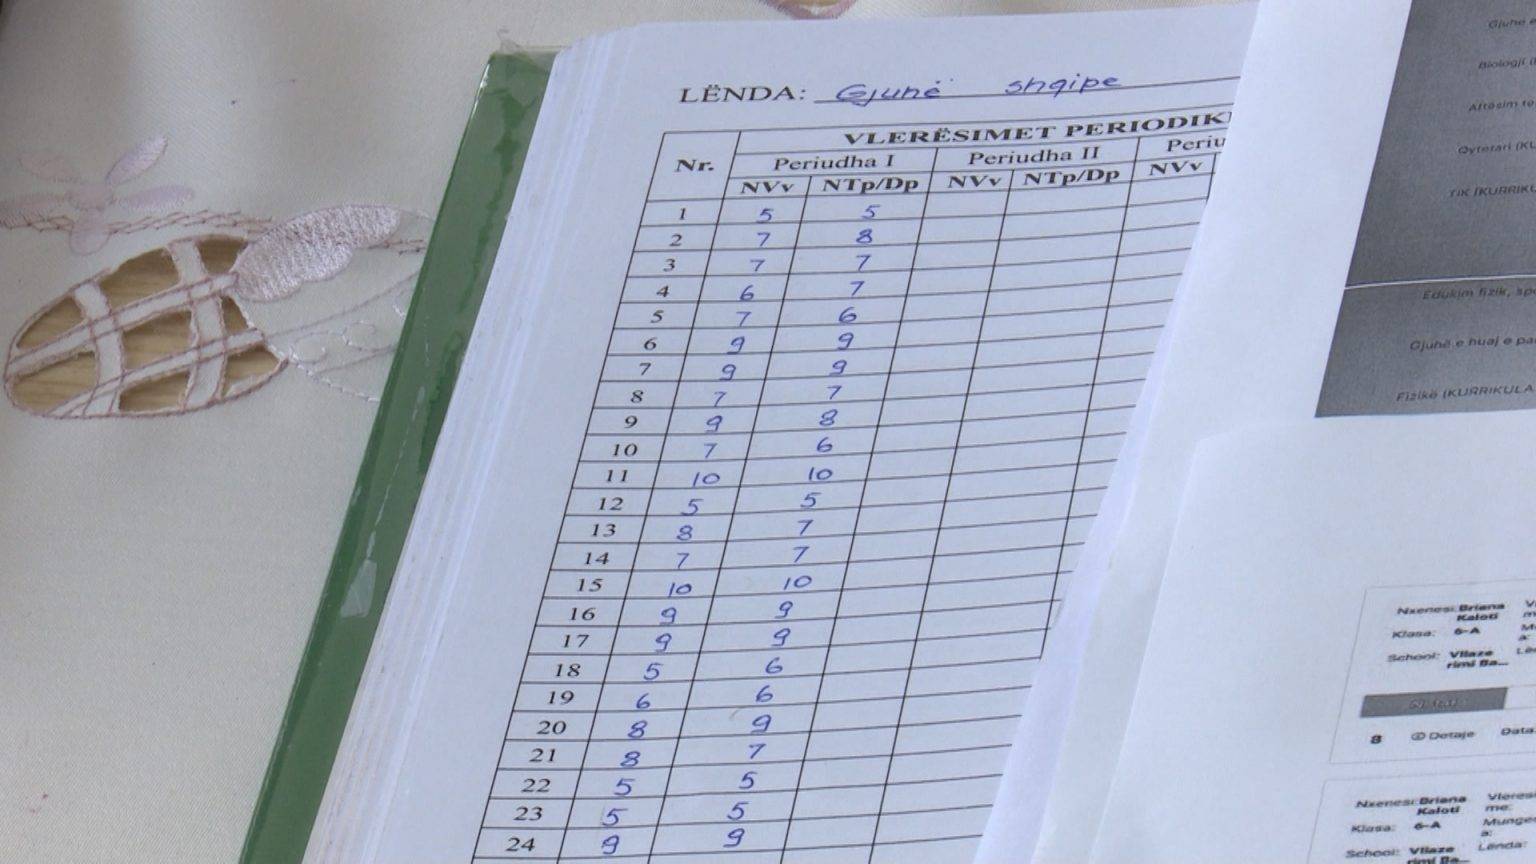 LËNDA: Gjuhë shqipe
VLERËSIMET PERIODIK
Nr. Periudha I Periudha II Periu
NVv NTp/Dp NVv NTp/Dp NVv
1 5 5
2 7 8
3 7 7
4 6 7
5 7 6
6 9 9
7 9 9
8 7 7
9 9 8
10 7 6
11 10 10
12 5 5
13 8 7
14 7 7
15 10 10
16 9 9
17 9 9
18 5 6
19 6 6
20 8 9
21 8 7
22 5 5
23 5 5
24 9 9
Gjuhë e
Biologji (
Aftësim të
Qytetari (KU
TIK (KURRIKU
Edukim fizik, spo
Gjuhë e huaj e pa
Fizikë (KURRIKULA
Nxenesi: Briana Kaloti
Klasa: 6-A
School: Vllaze rimi Ba...
8 Detaje Data
Nxenesi: Briana Kaloti Vleresi me:
Klasa: 6-A Munges a:
School: Vllaze rimi Ba... Lenda: